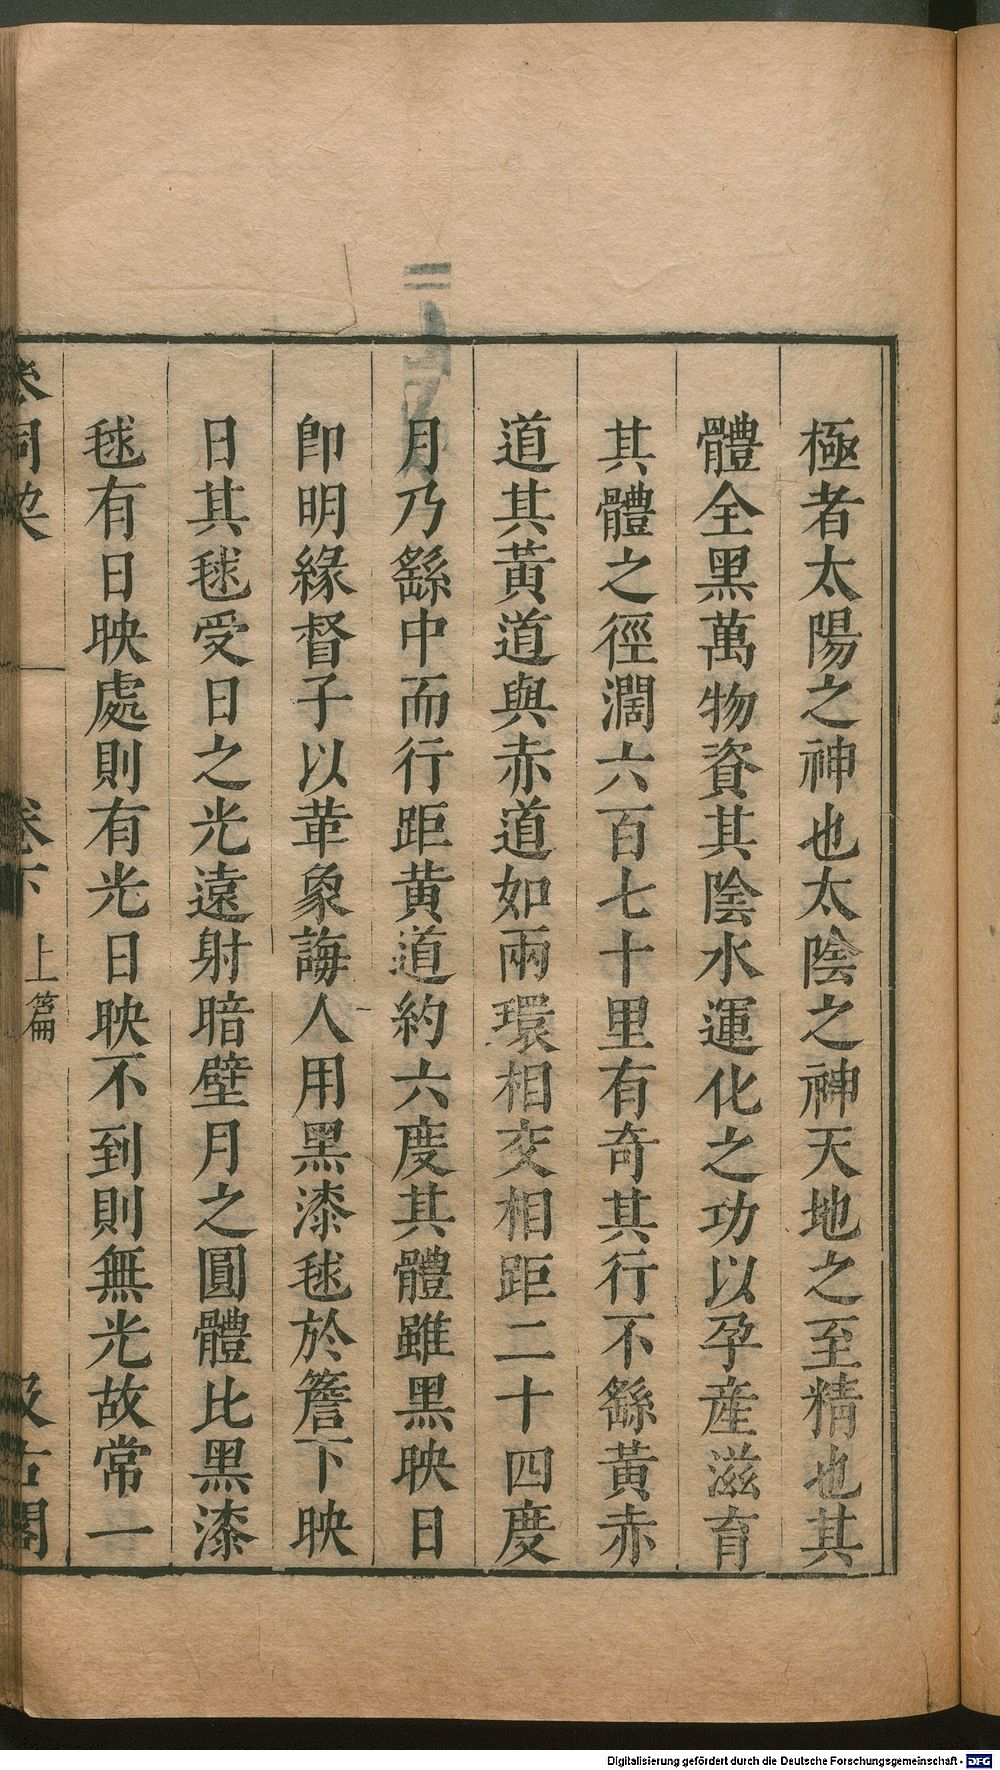 極者太陽之神也太陰之神天地之至精也其
體全黑萬物資其陰水運化之功以孕産滋育
其體之徑濶六百七十里有奇其行不繇黃赤
道其黃道與赤道如兩環相交相距二十四度
月乃繇中而行距黃道約六度其體雖黑映日
卽明緣督子以革象誨人用黑漆毬於簷下映
日其毬受日之光遠射暗壁月之圓體比黑漆
毬有日映處則有光日映不到則無光故常一
上篇
Digitalisierung gefördert durch die Deutsche Forschungsgemeinschaft - DFG